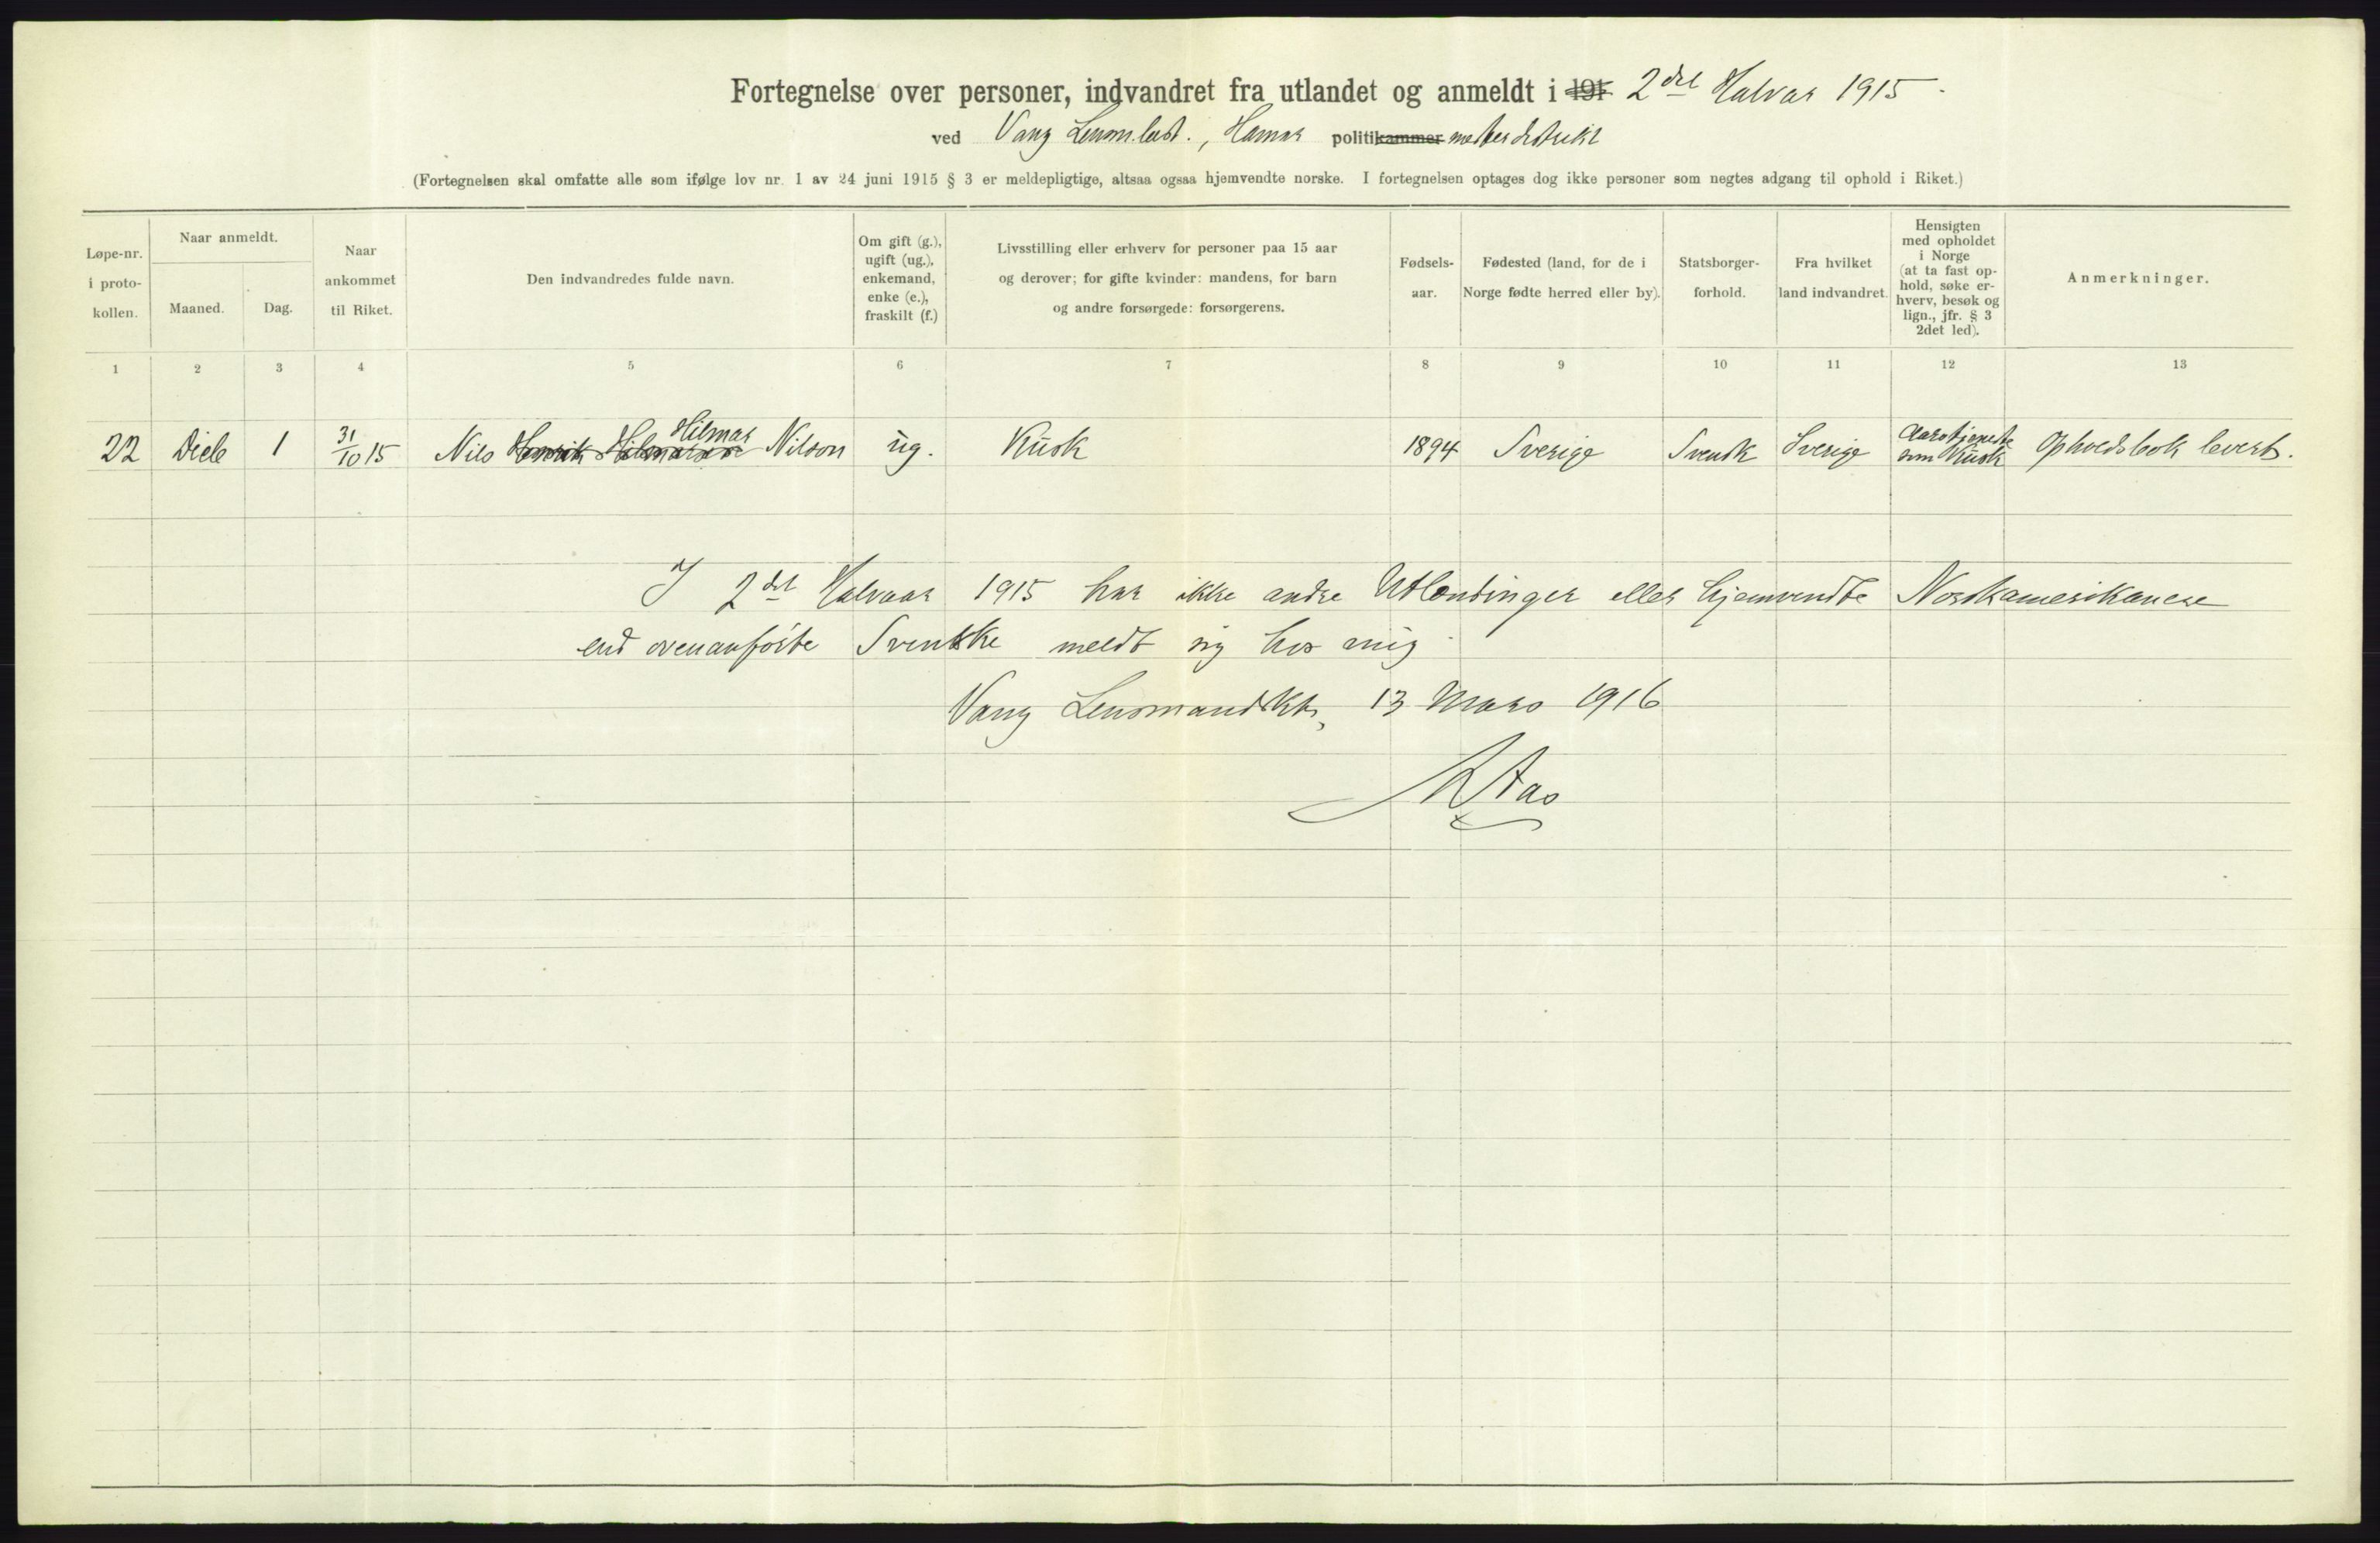 Fortegnelse over personer, indvandret fra utlandet og anmeldt i 191 2det Halvaar 1915.
ved Vang Lensm. , Hamar politikammer mesterdistrikt
(Fortegnelsen skal omfatte alle som ifølge lov nr. 1 av 24 juni 1915 § 3 er meldepligtige, altsaa ogsaa hjemvendte norske. I fortegnelsen optages dog ikke personer som negtes adgang til ophold i Riket.)
Løpe-nr.
i proto-
kollen.
Naar anmeldt.
Maaned.
Dag.
Naar
ankommet
til Riket.
Den indvandredes fulde navn.
Om gift (g.),
ugift (ug.),
enkemand,
enke (e.),
fraskilt (f.)
Livsstilling eller erhverv for personer paa 15 aar
og derover; for gifte kvinder: mandens, for barn
og andre forsørgede: forsørgerens.
Fødsels-
aar.
Fødested (land, for de i
Norge fødte herred eller by).
Statsborger-
forhold.
Fra hvilket
land indvandret.
Hensigten
med opholdet
i Norge
(at ta fast op-
hold, søke er-
hverv, besøk og
lign., jfr. § 3
2det led).
Anmerkninger.
1 2 3 4 5 6 7 8 9 10 11 12 13
Hilmar
22 1 31/10 15 Nils Henrik Nilson ug. Kusk 1894 Sverige Svensk Sverige Aarstjeneste
som Kusk
Opholdsbok levert.
I 2det Halvaar 1915 har ikke andre Utlendinger eller hjemvendte Norskamerikanere
end ovenanførte Svenske meldt sig hos mig.
Vang Lensmandskt, 13 Mars 1916